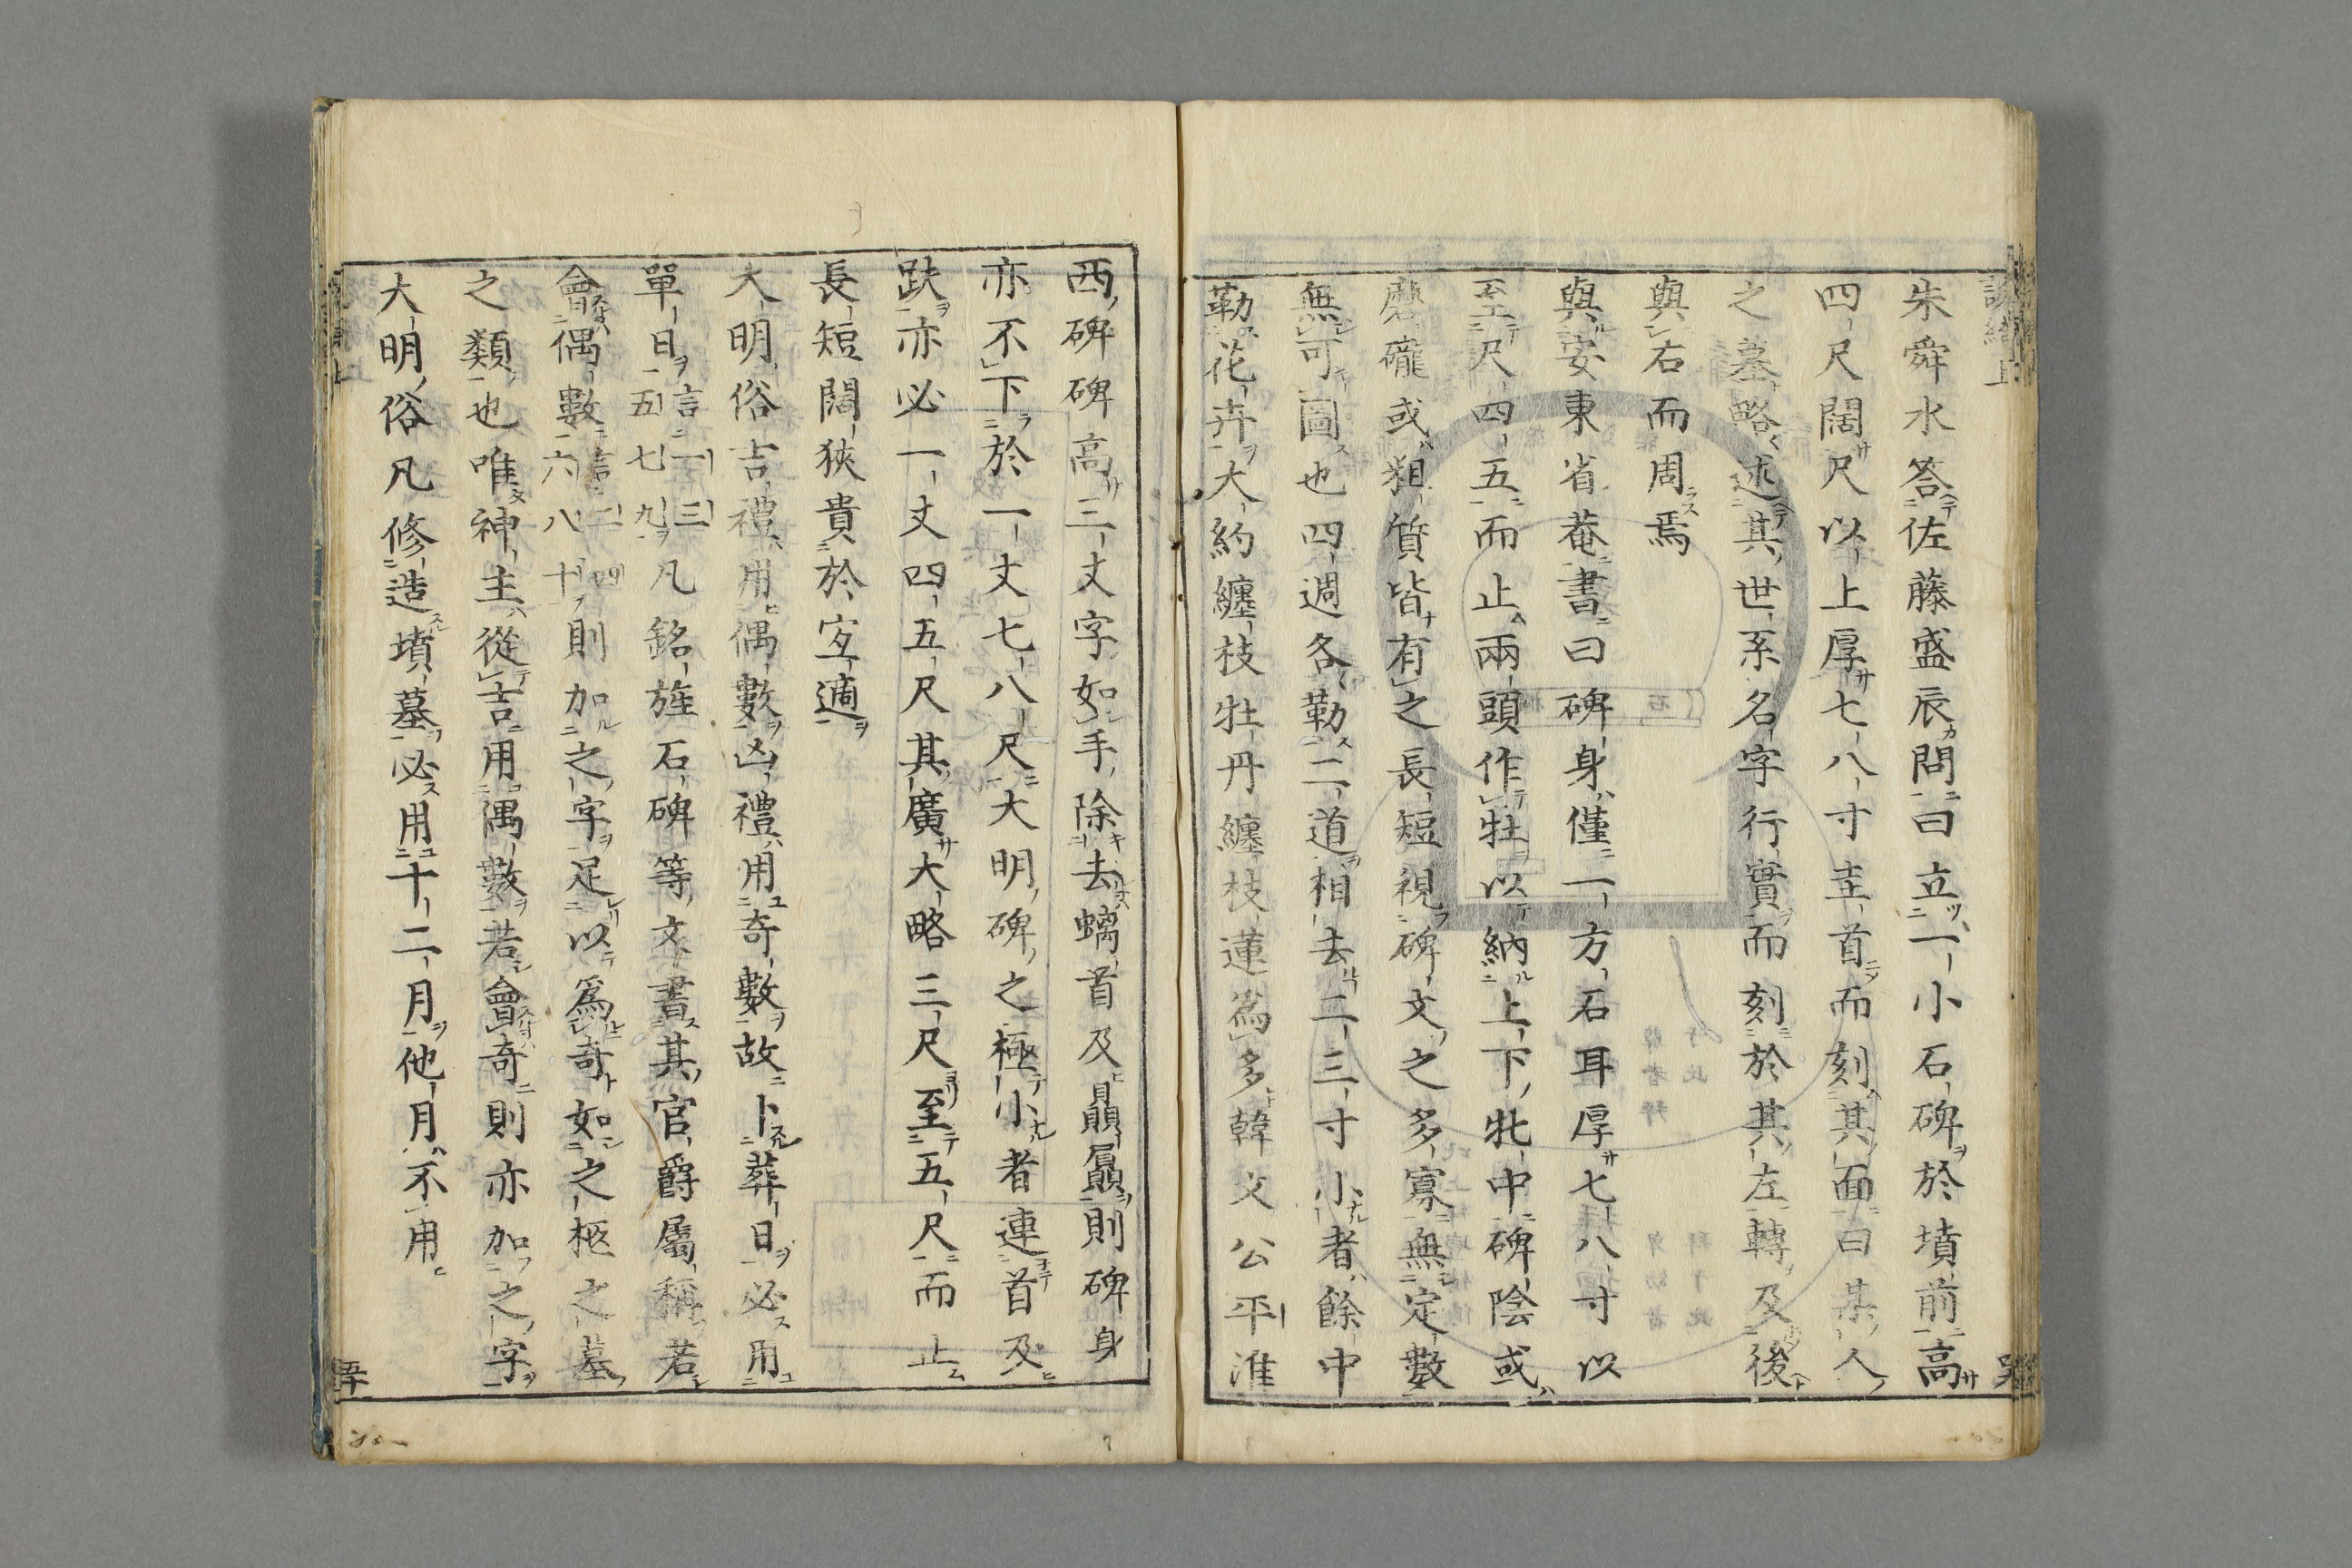 朱舜水答佐藤盛辰問曰立一小石碑於墳前高
四尺闊尺以上厚七八寸圭首而刻其面曰某人
之墓略述其世系名字行實而刻於其左轉及後
與右而周焉
與安東省菴書曰碑身僅一方石耳厚七八寸以
至尺四五而止兩頭作牡以納上下牝中碑陰或
磨礲或粗質皆有之長短視碑文之多寡無定數
無可圖也四週各勒二道相去二三寸小者餘中
勒花卉大約纏枝牡丹纏枝蓮爲多韓文公平淮
西碑碑高三丈字如手除去螭首及贔屭則碑身
亦不下於一丈七八尺大明碑之極小者連首及
趺亦必一丈四五尺其廣大略三尺至五尺而止
長短闊狹貴於宜適
大明俗吉禮用偶數凶禮用奇數故卜葬日必用
單日言一三五七九凡銘旌石碑等文書其官爵屬稱若
會偶數言二四六八十則加之字足以爲奇如之柩之墓
之類也唯神主從吉用偶數若會奇則亦加之字
大明俗凡修造墳墓必用十二月他月不用